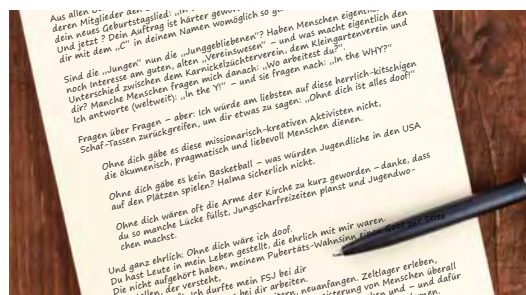 Aus allen
deren Mitglieder den
dein neues Geburtstagslied: „It
Und jetzt ? Dein Auftrag ist härter gewor
dir mit dem „C“ in deinem Namen womöglich so ga
Sind die „Jungen“ nun die „Junggebliebenen“? Haben Menschen eigentlich
noch Interesse am guten, alten „Vereinswesen“ – und was macht eigentlich den
Unterschied zwischen dem Karnickelzüchterverein, dem Kleingartenverein und
dir? Manche Menschen fragen mich danach: „Wo arbeitest du?“.
Ich antworte (weltweit): „In the Y!“ – und sie fragen nach: „In the WHY?“
Fragen über Fragen – aber: Ich würde am liebsten auf diese herrlich-kitschigen
Schaf-Tassen zurückgreifen, um dir etwas zu sagen: „Ohne dich ist alles doof!“
Ohne dich gäbe es diese missionarisch-kreativen Aktivisten nicht,
die ökumenisch, pragmatisch und liebevoll Menschen dienen.
Ohne dich gäbe es kein Basketball – was würden Jugendliche in den USA
auf den Plätzen spielen? Halma sicherlich nicht.
Ohne dich wären oft die Arme der Kirche zu kurz geworden – danke, dass
du so manche Lücke füllst, Jungscharfreizeiten planst und Jugendwo-
chen machst.
Und ganz ehrlich: Ohne dich wäre ich doof.
Du hast Leute in mein Leben gestellt, die ehrlich mit mir waren.
Die nicht aufgehört haben, meinem Pubertäts-Wahnsinn einen Gott zur Seite
stellen, der versteht,
Ich durfte mein FSJ bei dir
bei dir arbeiten.
neuanfangen. Zeltlager erleben,
Menschen überall
und – und dafür